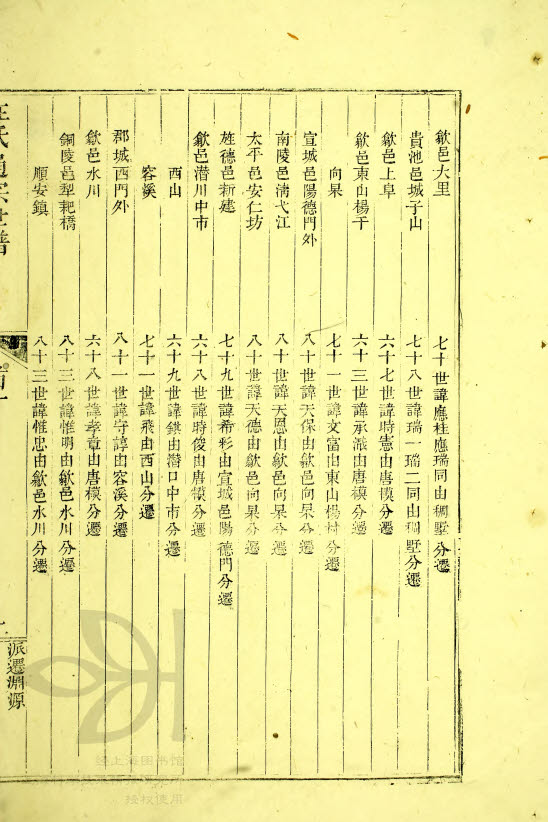 歙邑大里 七十世諱應桂應瑞同由稠墅分遷
貴池邑城子山 七十八世諱瑞一瑞二同由稠墅分遷
歙邑上阜 六十七世諱時憲由唐模分遷
歙邑東山楊干 六十三世諱承派由唐模分遷
向杲 七十一世諱文富由東山楊村分遷
宣城邑陽德門外 八十世諱天保由歙邑向杲分遷
南陵邑淸弋江 八十世諱天恩由歙邑向杲分遷
太平邑安仁坊 八十世諱天德由歙邑向杲分遷
旌德邑新建 七十九世諱希彩由宣城邑陽德門分遷
歙邑潛川中市 六十八世諱時俊由唐模分遷
西山 六十九世諱錤由潛口中市分遷
容溪 七十一世諱飛由西山分遷
郡城西門外 八十一世諱守諄由容溪分遷
歙邑水川 六十八世諱孝章由唐模分遷
銅陵邑犁耙橋 八十三世諱惟明由歙邑水川分遷
順安鎮 八十三世諱惟忠由歙邑水川分遷
氏通宗世譜
派遷淵源
经上海图书馆
授权使用